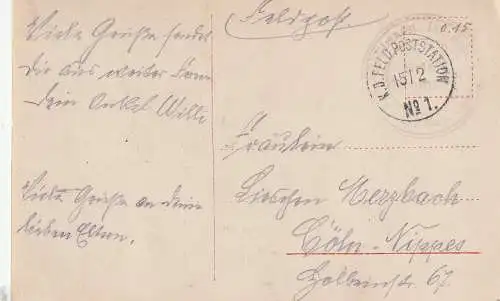 Viele Grüße sendet
Dir aus weiter Ferne
Dein Onkel Willi
Viele Grüße an Deine
lieben Eltern.
Feldpost.
0.15
K.D.FELD.POSTSTATION
15/2
No 1.
Fräulein
Lieschen Merzbach
Cöln-Nippes
Holbeinstr. 67.